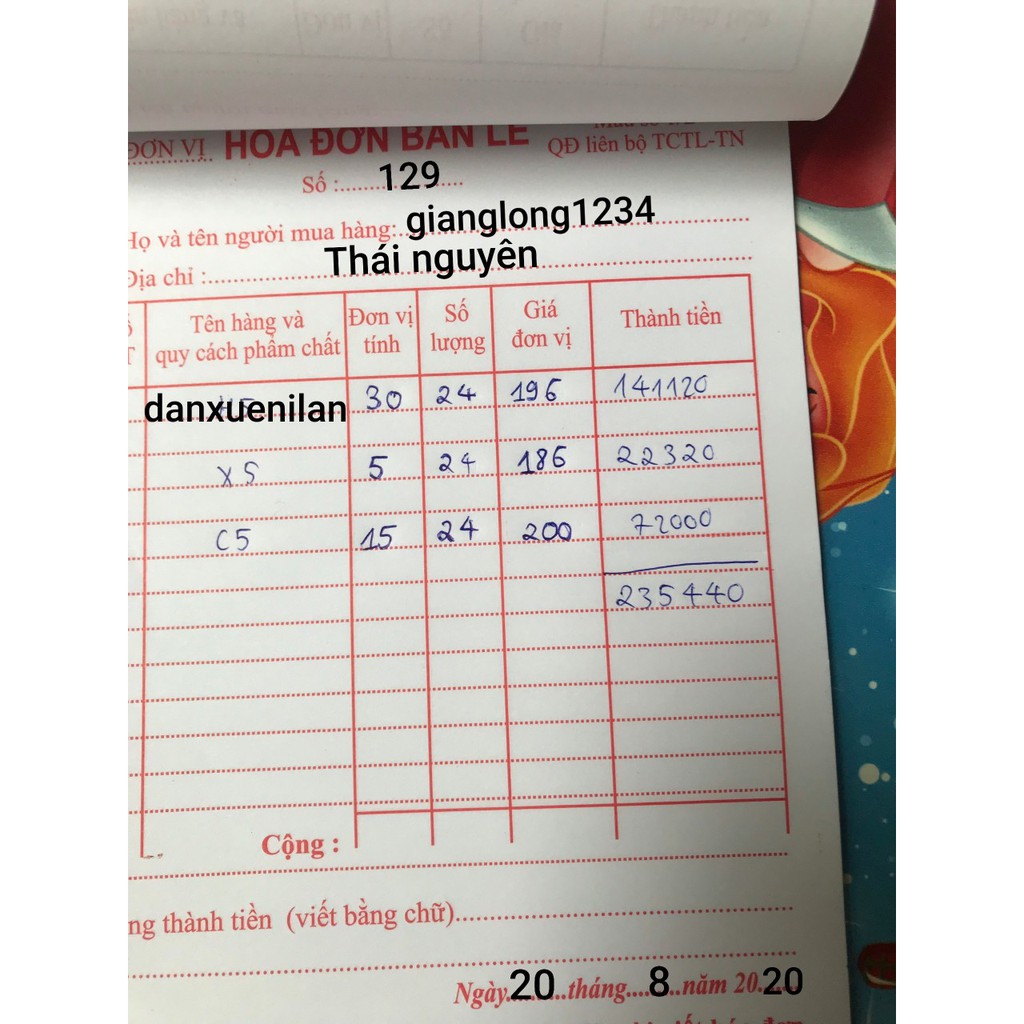 ĐƠN VỊ HÓA ĐƠN BÁN LẺ
QĐ liên bộ TCTL-TN
Số :........129......
Họ và tên người mua hàng:..gianglong1234
Địa chỉ :........Thái nguyên
Tên hàng và quy cách phẩm chất Đơn vị tính Số lượng Giá đơn vị Thành tiền
danxuenilan 30 24 196 141120
X5 5 24 186 22320
C5 15 24 200 72000
235440
Cộng :
ng thành tiền (viết bằng chữ)........
Ngày 20 tháng 8 năm 20 20